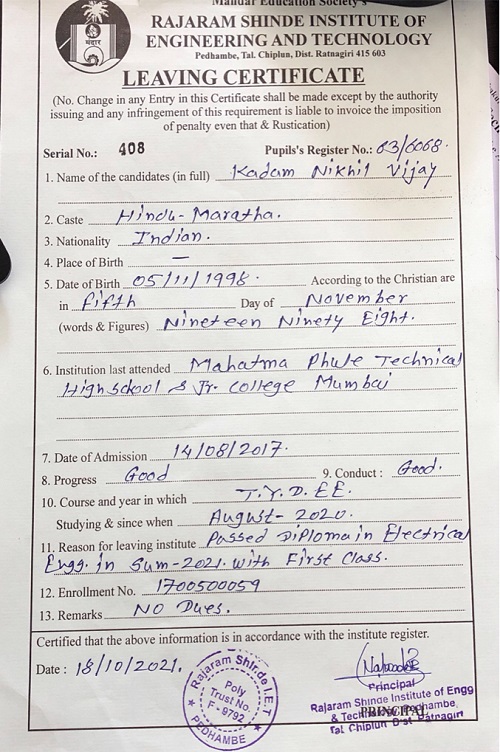 Mandar Education Society's
RAJARAM SHINDE INSTITUTE OF
ENGINEERING AND TECHNOLOGY
Pedhambe, Tal. Chiplun, Dist. Ratnagiri 415 603
मंदार
LEAVING CERTIFICATE
(No. Change in any Entry in this Certificate shall be made except by the authority
issuing and any infringement of this requirement is liable to invoice the imposition
of penalty even that & Rustication)
Serial No.: 408 Pupils's Register No.: 03/6068.
1. Name of the candidates (in full) Kadam Nikhil Vijay
2. Caste Hindu-Maratha.
3. Nationality Indian.
4. Place of Birth —
5. Date of Birth 05/11/1998. According to the Christian are
in Fifth Day of November
(words & Figures) Nineteen Ninety Eight.
6. Institution last attended Mahatma Phule Technical
Highschool & Jr. College Mumbai
7. Date of Admission 14/08/2017.
8. Progress Good 9. Conduct : Good.
10. Course and year in which T.Y.D.EE.
Studying & since when August-2020.
11. Reason for leaving institute Passed Diploma in Electrical
Engg. in Sum-2021. with First Class.
12. Enrollment No. 1700500059
13. Remarks No Dues.
Certified that the above information is in accordance with the institute register.
Date : 18/10/2021.
Rajaram Shinde I.E.T
Poly
Trust No.
F-9792
PEDHAMBE
Principal
Rajaram Shinde Institute of Engg
& Technology Pedhambe,
Tal Chiplun Dist Ratnagiri
PRINCIPAL